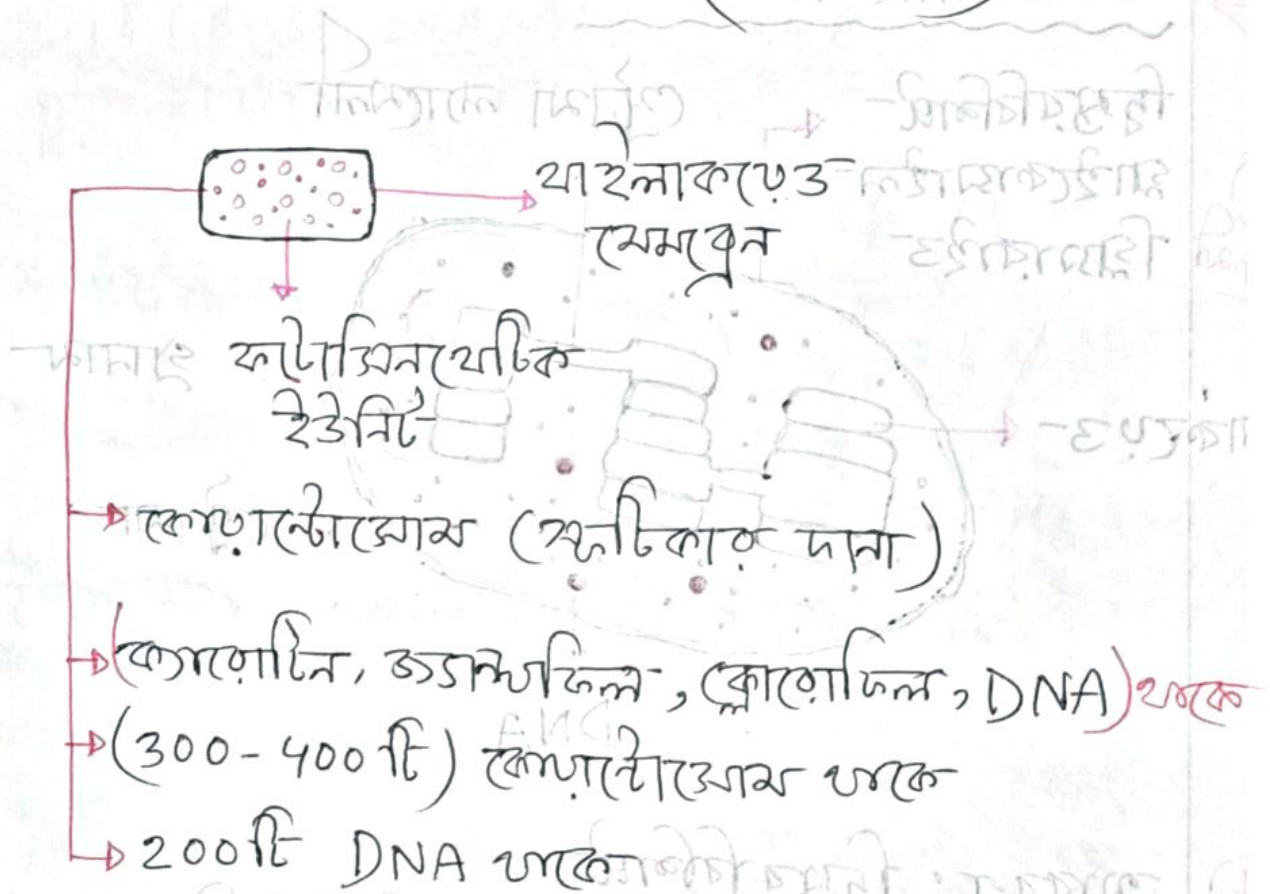 থাইলাকয়েড
মেমব্রেন
ফটোসিনথেটিক
ইউনিট
কোয়ান্টোসোম (স্ফটিকার দানা)
(ক্যারোটিন, জ্যান্থফিল, ক্লোরোফিল, DNA) থাকে
(300-400 টি) কোয়ান্টোসোম থাকে
200টি DNA থাকে